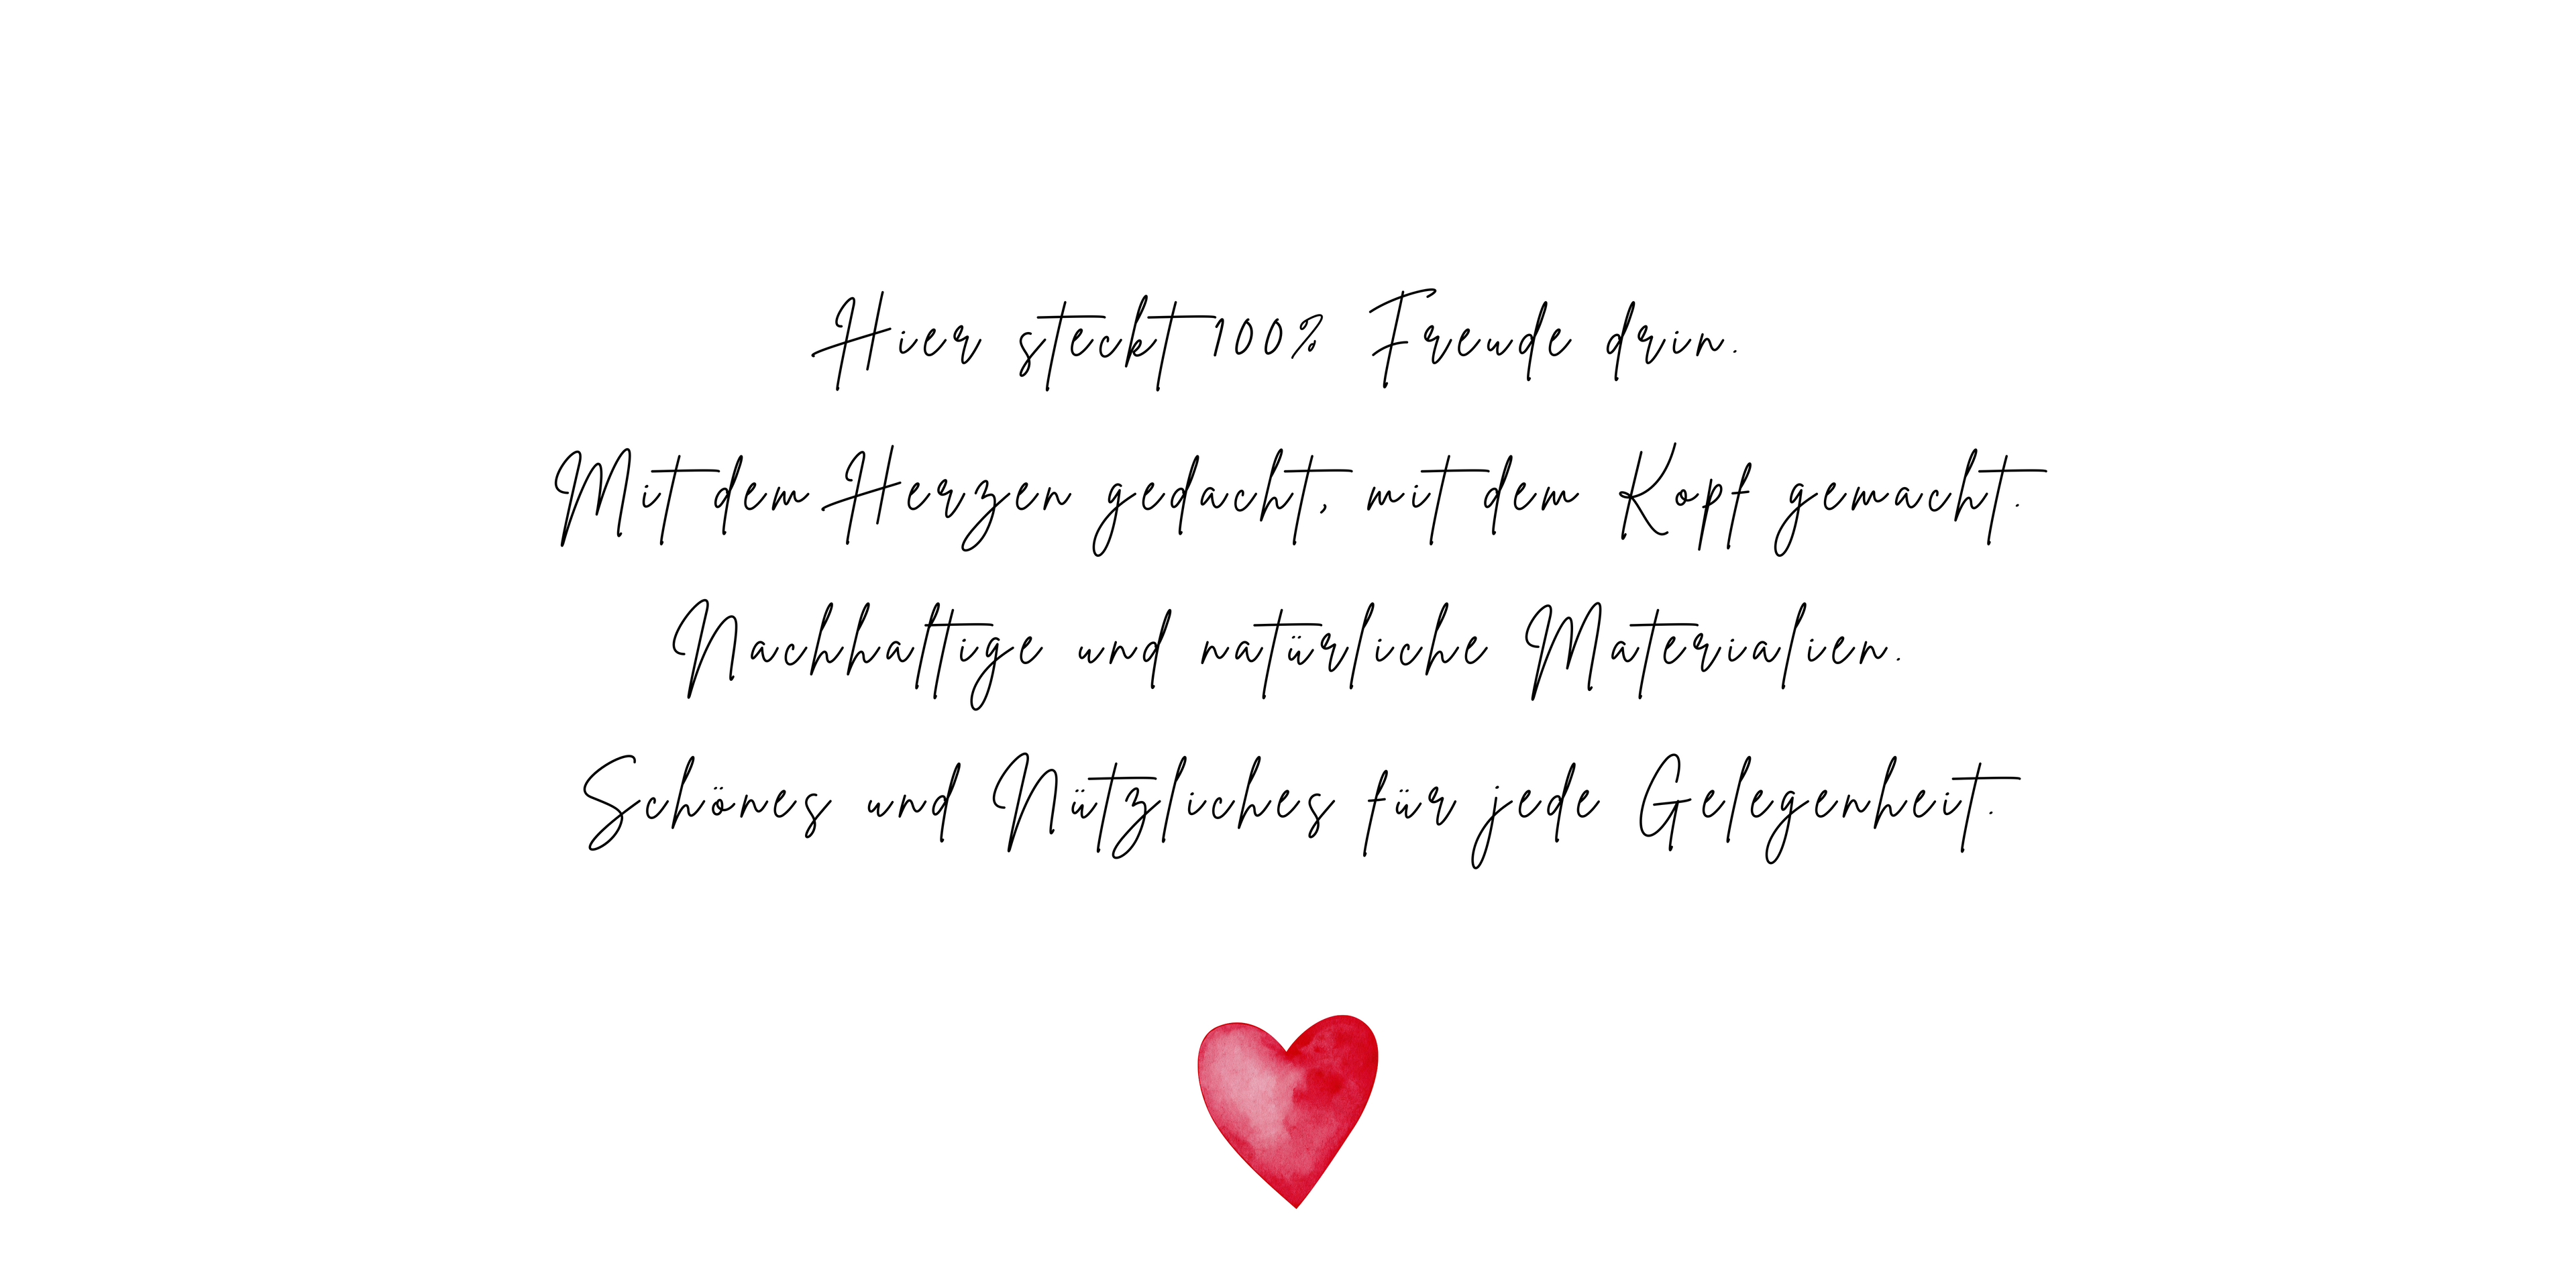 Hier steckt 100% Freude drin.
Mit dem Herzen gedacht, mit dem Kopf gemacht.
Nachhaltige und natürliche Materialien.
Schönes und Nützliches für jede Gelegenheit.